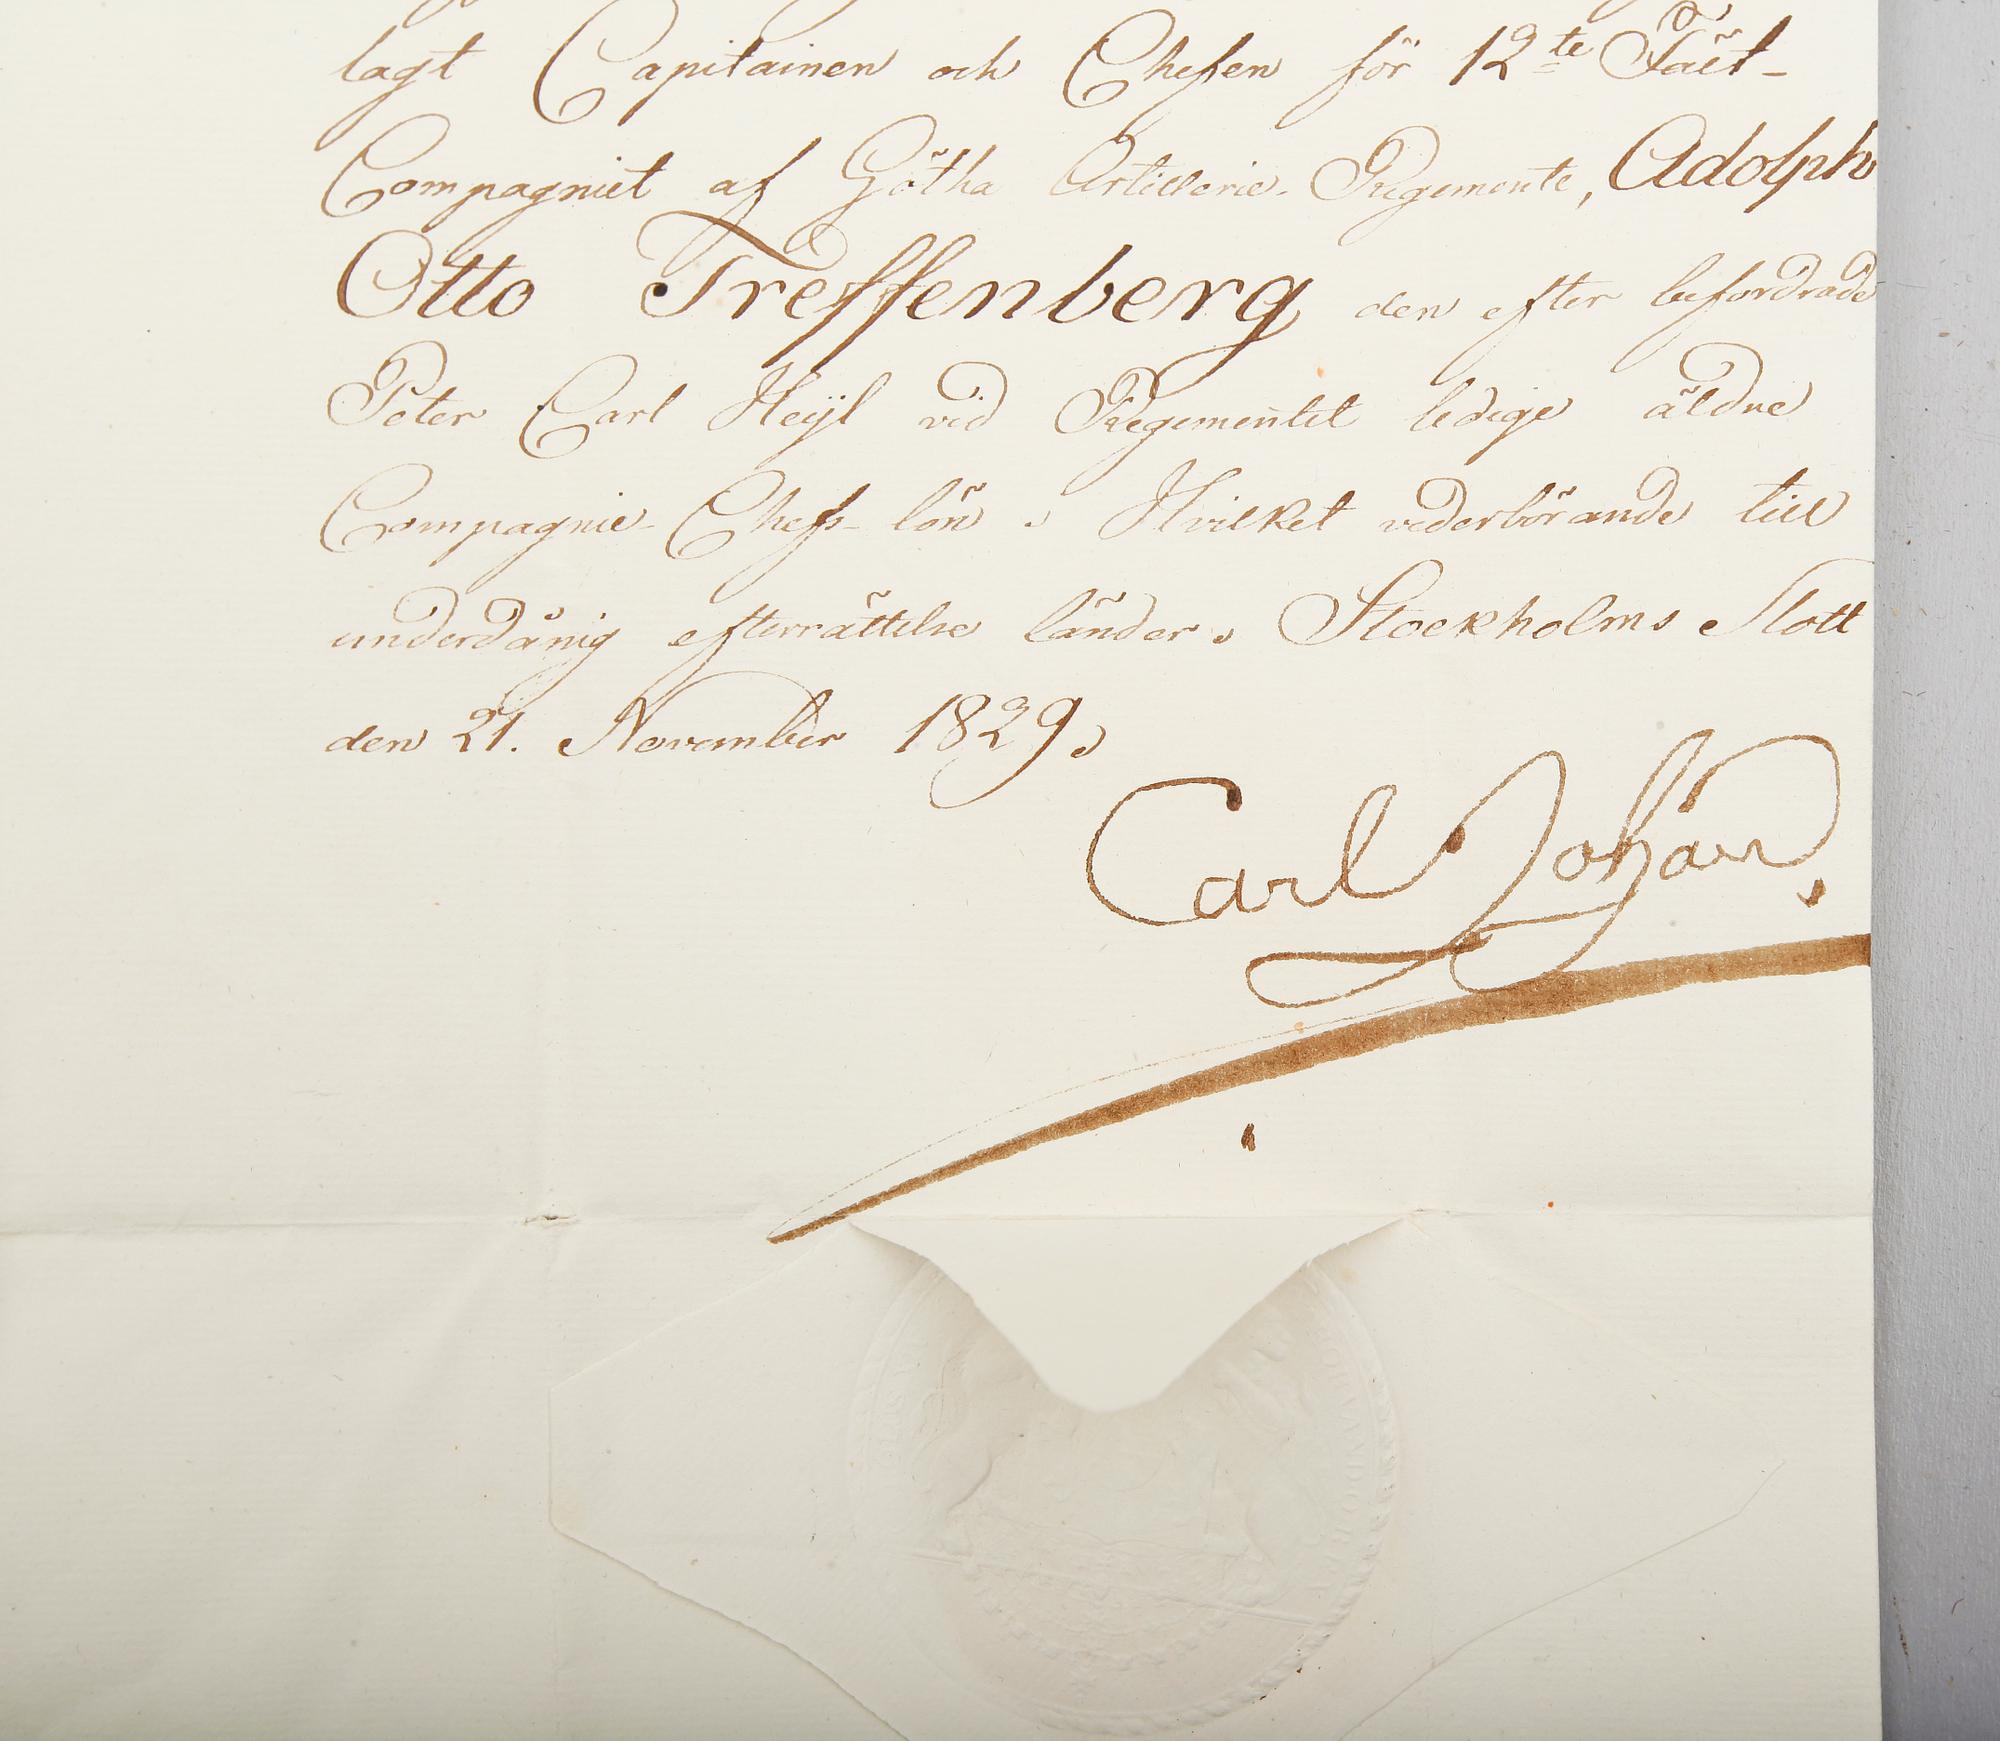 lagt Capitainen och Chefen för 12te Fält-
Compagniet af Götha Artillerie-Regemente, Adolph
Otto Treffenberg den efter befordrade
Peter Carl Heijl vid Regementet ledige äldre
Compagnie-Chefs-lön. Hvilket vederbörande till
underdånig efterrättelse länder. Stockholms Slott
den 21. November 1829.
Carl Johan